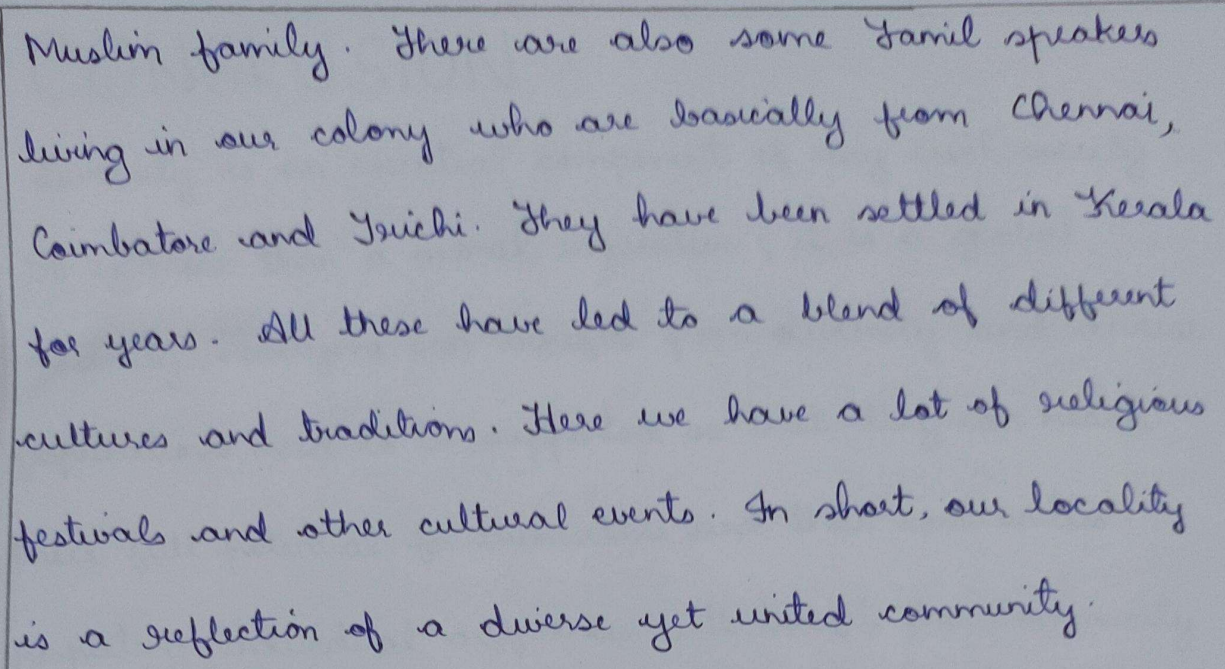 Muslim family. There are also some Tamil speakers
living in our colony who are basically from Chennai,
Coimbatore and Truichi. They have been settled in Kerala
for years. All these have led to a blend of different
cultures and traditions. Here we have a lot of religious
festivals and other cultural events. In short, our locality
is a reflection of a diverse yet united community.